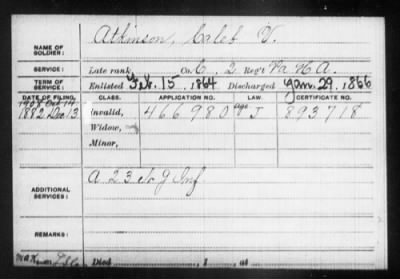 NAME OF SOLDIER: Atkinson, Caleb V.
SERVICE: Late rank Co. C, 2 Reg't Pa H A.
TERM OF SERVICE: Enlisted Feb. 15, 1864 Discharged Jan. 29, 1866
DATE OF FILING. CLASS. APPLICATION NO. LAW. CERTIFICATE NO.
1908 Oct 14
1882 Dec 13 Invalid, 466980 age J 893718
Widow,
Minor,
ADDITIONAL SERVICES: A 23 N J Inf
REMARKS:
Died , 1 , at